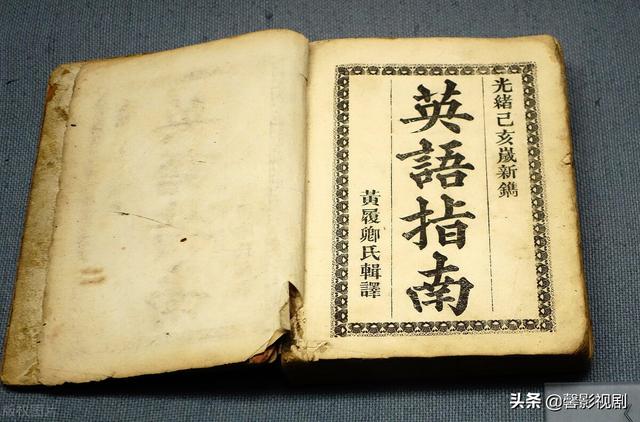 光緒己亥歲新鐫
英語指南
黃履卿氏輯譯
头条 @馨影视剧
版权图片